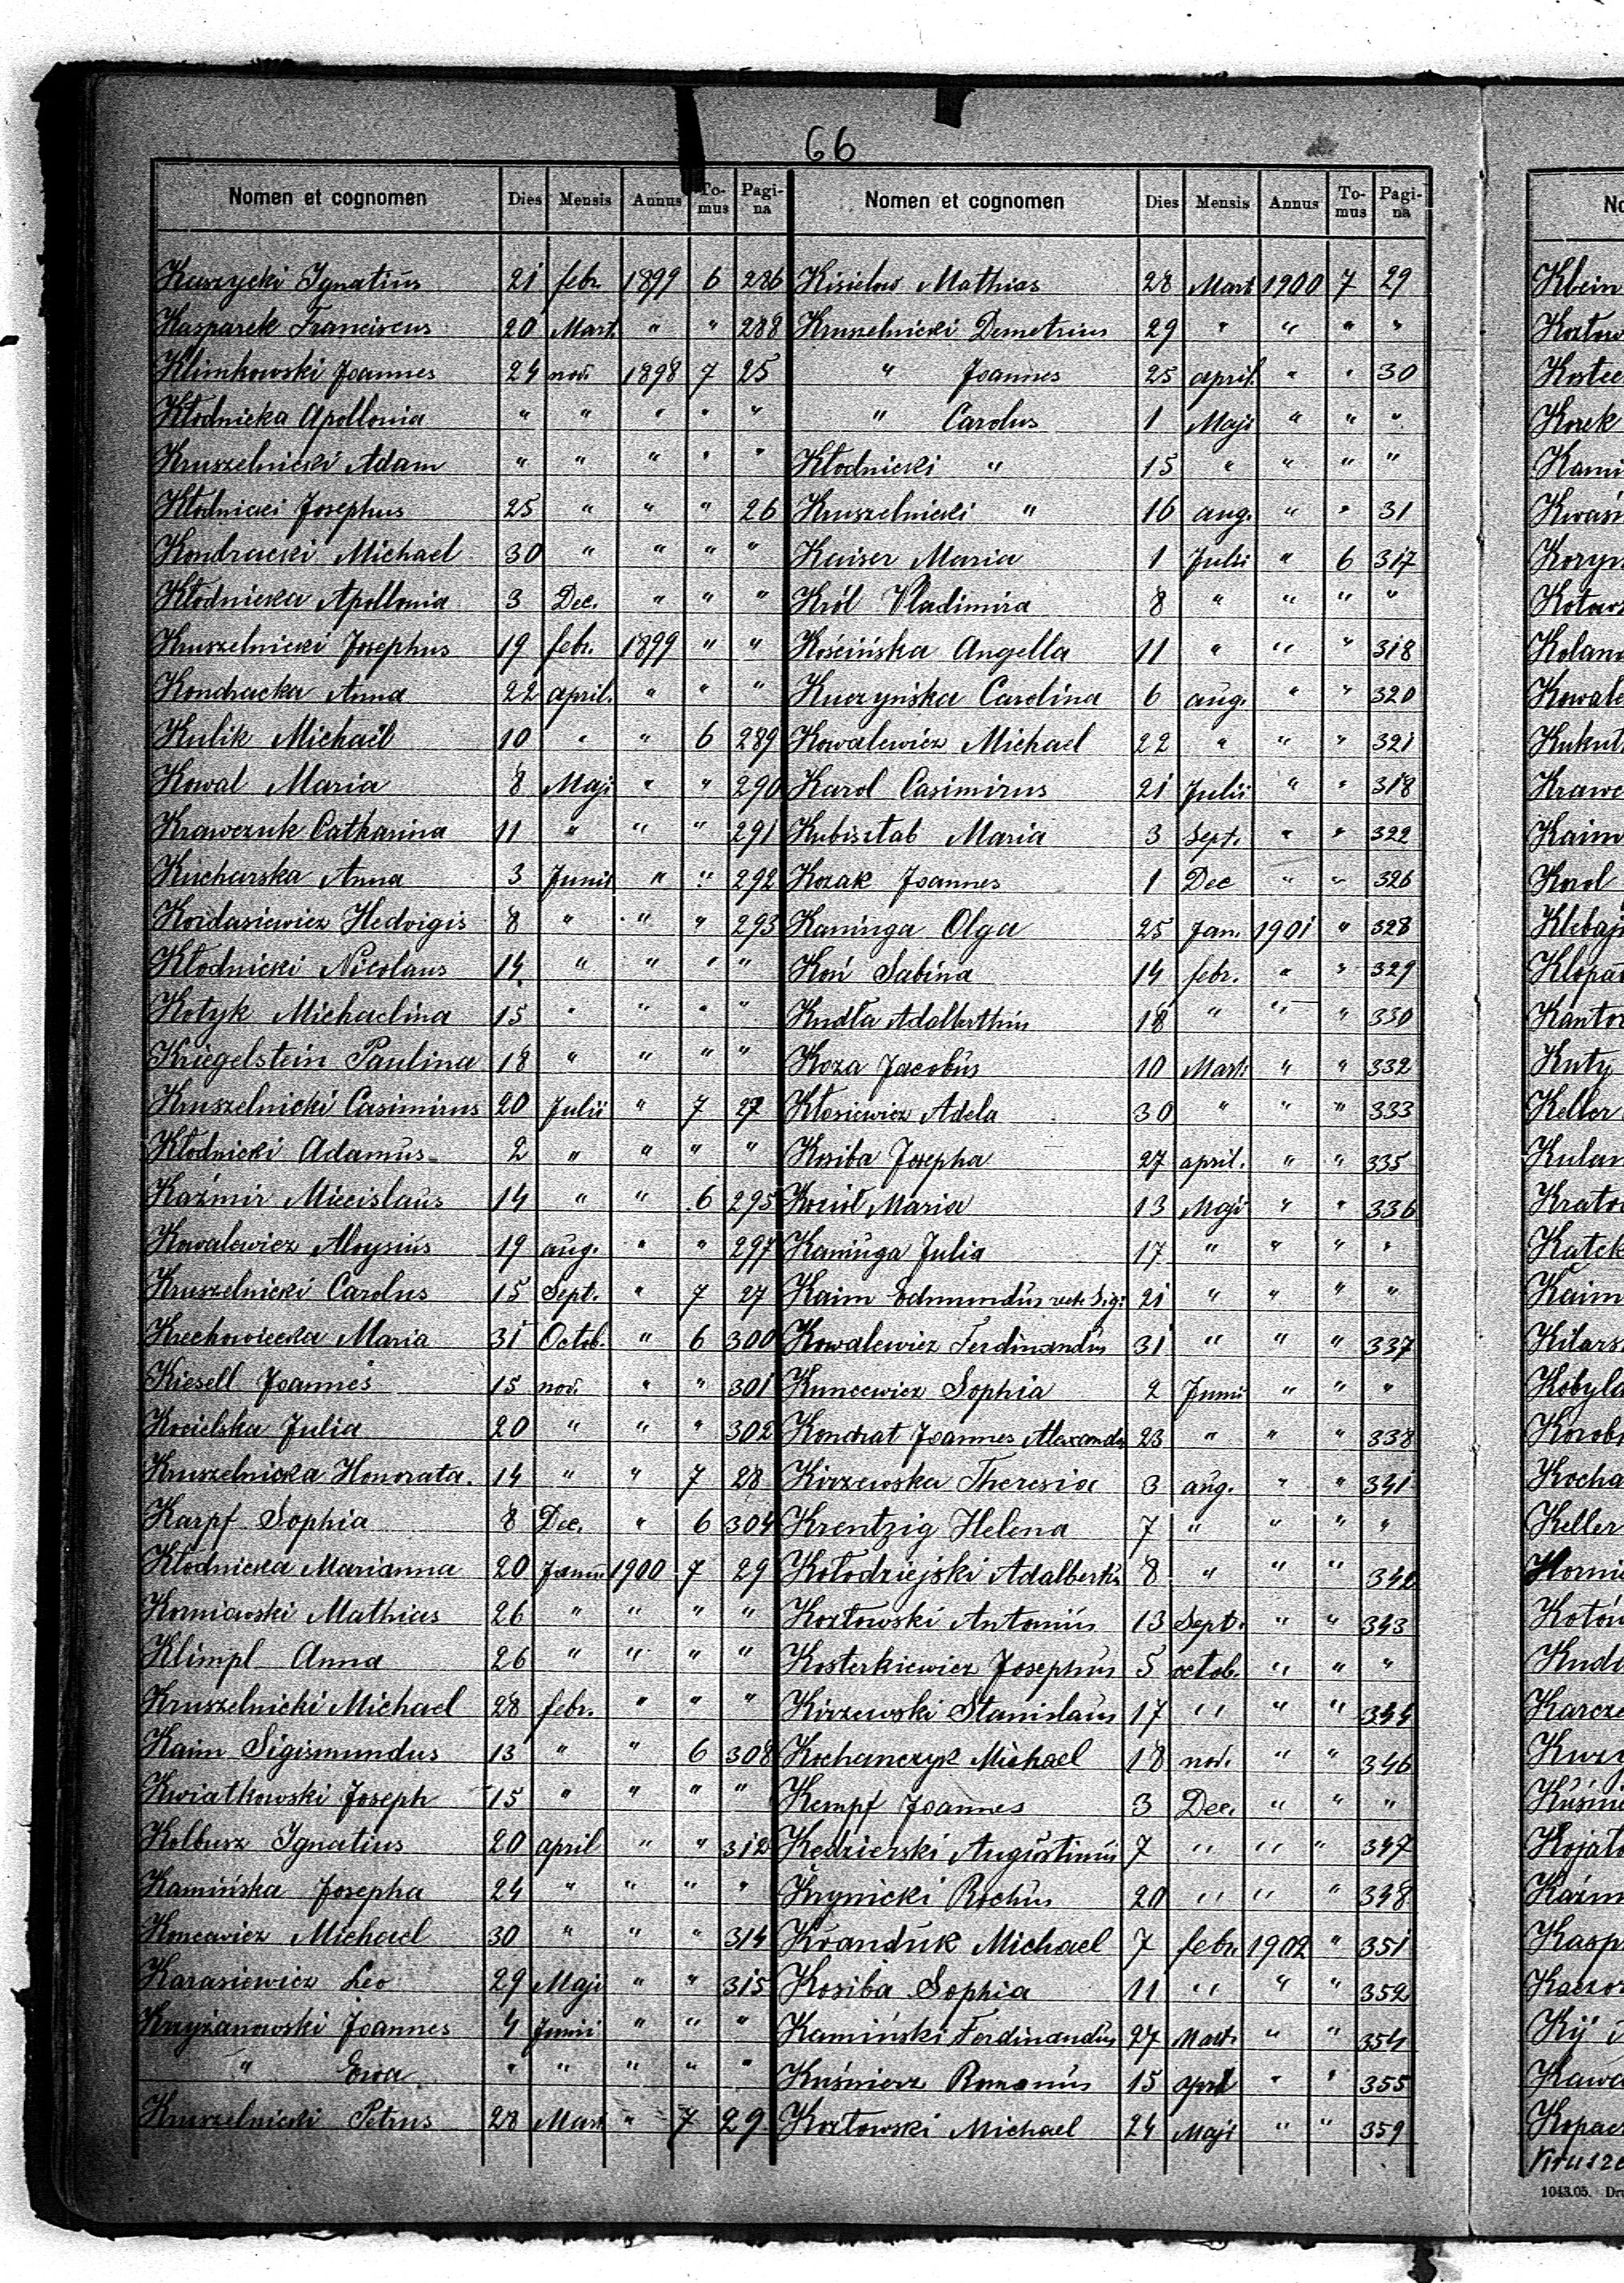 66
Nomen et cognomen Dies Mensis Annus To-mus Pagi-na
Kuszycki Ignatius 21 febr. 1899 6 286
Kasparek Franciscus 20 Mart. " " 288
Klimkowski Joannes 24 nov. 1898 7 25
Kłodnicka Apollonia " " " " "
Kruszelnicki Adam " " " " "
Kłodnicki Josephus 25 " " " 26
Kondracki Michael 30 " " " "
Kłodnicka Apollonia 3 Dec. " " "
Kruszelnicki Josephus 19 febr. 1899 " "
Kondracka Anna 22 april. " " "
Kulik Michaël 10 " " 6 289
Kowal Maria 8 Maji " " 290
Krawczuk Catharina 11 " " " 291
Kucharska Anna 3 Junii " " 292
Kordasiewicz Hedvigis 8 " " " 293
Kłodnicki Nicolaus 14 " " " "
Kotyk Michaelina 15 " " " "
Kriegelstein Paulina 18 " " " "
Kruszelnicki Casimirus 20 Julii " 7 27
Kłodnicki Adamus 2 " " " "
Kaźmir Miecislaus 14 " " 6 295
Kowalewicz Aloysius 19 aug. " " 297
Kruszelnicki Carolus 15 Sept. " 7 27
Krechowiecka Maria 31 Octob. " 6 300
Kiesell Joannes 15 nov. " " 301
Kocielska Julia 20 " " " 302
Kruszelnicka Honorata 14 " " 7 28
Karpf Sophia 8 Dec. " 6 304
Kłodnicka Marianna 20 Januar 1900 7 29
Korniawski Mathias 26 " " " "
Klimpl Anna 26 " " " "
Kruszelnicki Michael 28 febr. " " "
Kaim Sigismundus 13 " " 6 308
Kwiatkowski Joseph 15 " " " "
Kolbusz Ignatius 20 april " " 312
Kamińska Josepha 24 " " " "
Koncewicz Michael 30 " " " 314
Karasiewicz Leo 29 Maji " " 315
Krzyżanowski Joannes 4 Junii " " "
" Ewa " " " " "
Kruszelnicki Petrus 28 Mart " 7 29
Nomen et cognomen Dies Mensis Annus To-mus Pagi-na
Kisielow Mathias 28 Mart 1900 7 29
Kruszelnicki Demetrius 29 " " " "
" Joannes 25 april. " " 30
" Carolus 1 Maji " " "
Kłodnicki " 15 " " " "
Kruszelnicki " 16 aug. " " 31
Kaiser Maria 1 Julii " 6 317
Król Vladimira 8 " " " "
Kościńska Angella 11 " " " 318
Kuczyńska Carolina 6 aug. " " 320
Kowalewicz Michael 22 " " " 321
Karol Casimirus 21 Julii " " 318
Kubisztab Maria 3 Sept. " " 322
Kozak Joannes 1 Dec " " 326
Kaninga Olga 25 Jan. 1901 " 328
Koń Sabina 14 febr. " " 329
Kudła Adalberthus 18 " " " 330
Koza Jacobus 10 Mart. " " 332
Kłosiewicz Adela 30 " " " 333
Kosiba Josepha 27 april. " " 335
Kozioł Maria 13 Maji " " 336
Kaniuga Julia 17 " " " "
Kaim Edmundus recte Sigi 21 " " " "
Kowalewicz Ferdinandus 31 " " " 337
Kuncewicz Sophia 2 Junii " " "
Kondrat Joannes Alexander 23 " " " 338
Kirzewska Theresia 3 aug. " " 341
Krentzig Helena 7 " " " "
Kołodziejski Adalbertus 8 " " " 342
Kozłowski Antonius 13 Sept. " " 343
Kosterkiewicz Josephus 5 octob. " " "
Kirzewski Stanislaus 17 " " " 344
Kochanczyk Michael 18 nov. " " 346
Kempf Joannes 3 Dec. " " "
Kedzierski Augustinus 7 " " " 347
Krynicki Rochus 20 " " " 348
Kranduk Michael 7 febr. 1902 " 351
Kosiba Sophia 11 " " " 352
Kamiński Ferdinandus 27 Mart. " " 354
Kuśnierz Romanus 15 april " " 355
Kozłowski Michael 24 Maji " " 359
No
Klein
Kozłow
Kostec
Korek
Kami
Kwaśn
Kolan
Kowal
Kukuł
Krawc
Kaim
Karol
Klopa
Kantor
Kuty
Keller
Kulan
Krato
Kaim
Kilars
Kobyla
Korob
Kocha
Keller
Kotow
Kudł
Karcze
Kojato
Kaźm
Kasp
Kaczo
Kopac
Krusze
1043.05. Dr